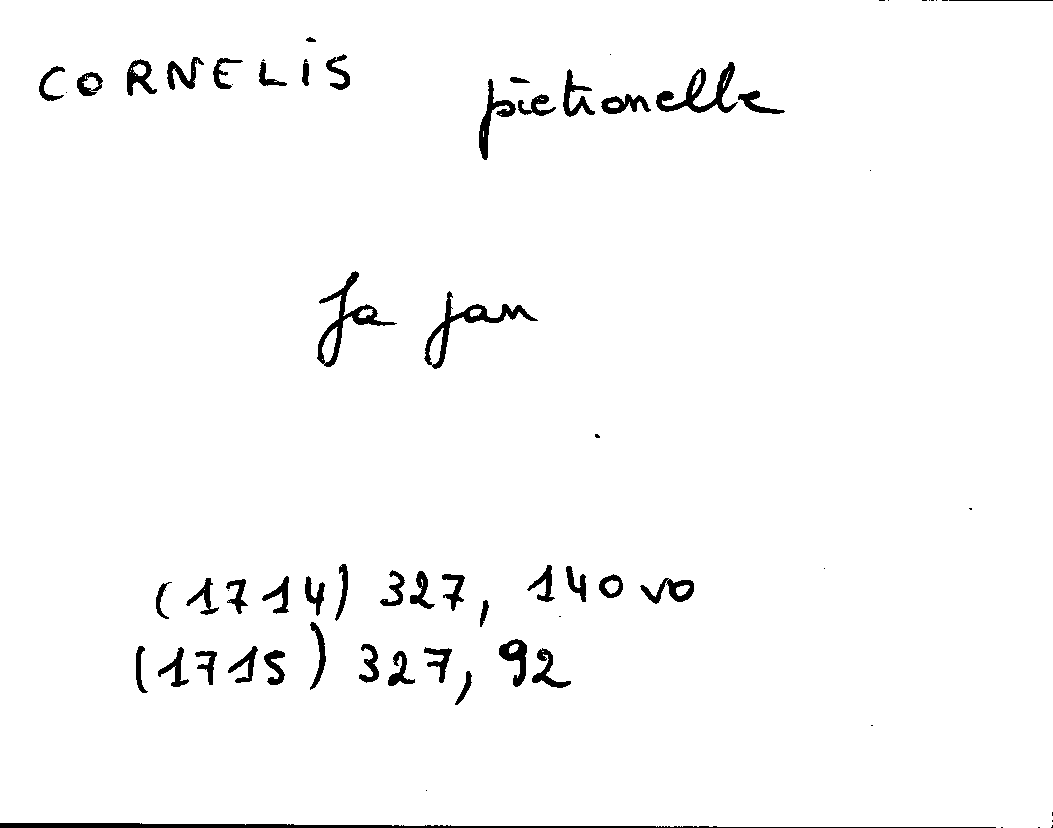 CORNELIS pietronelle
fa jan
(1714) 327, 140 vo
(1715) 327, 92